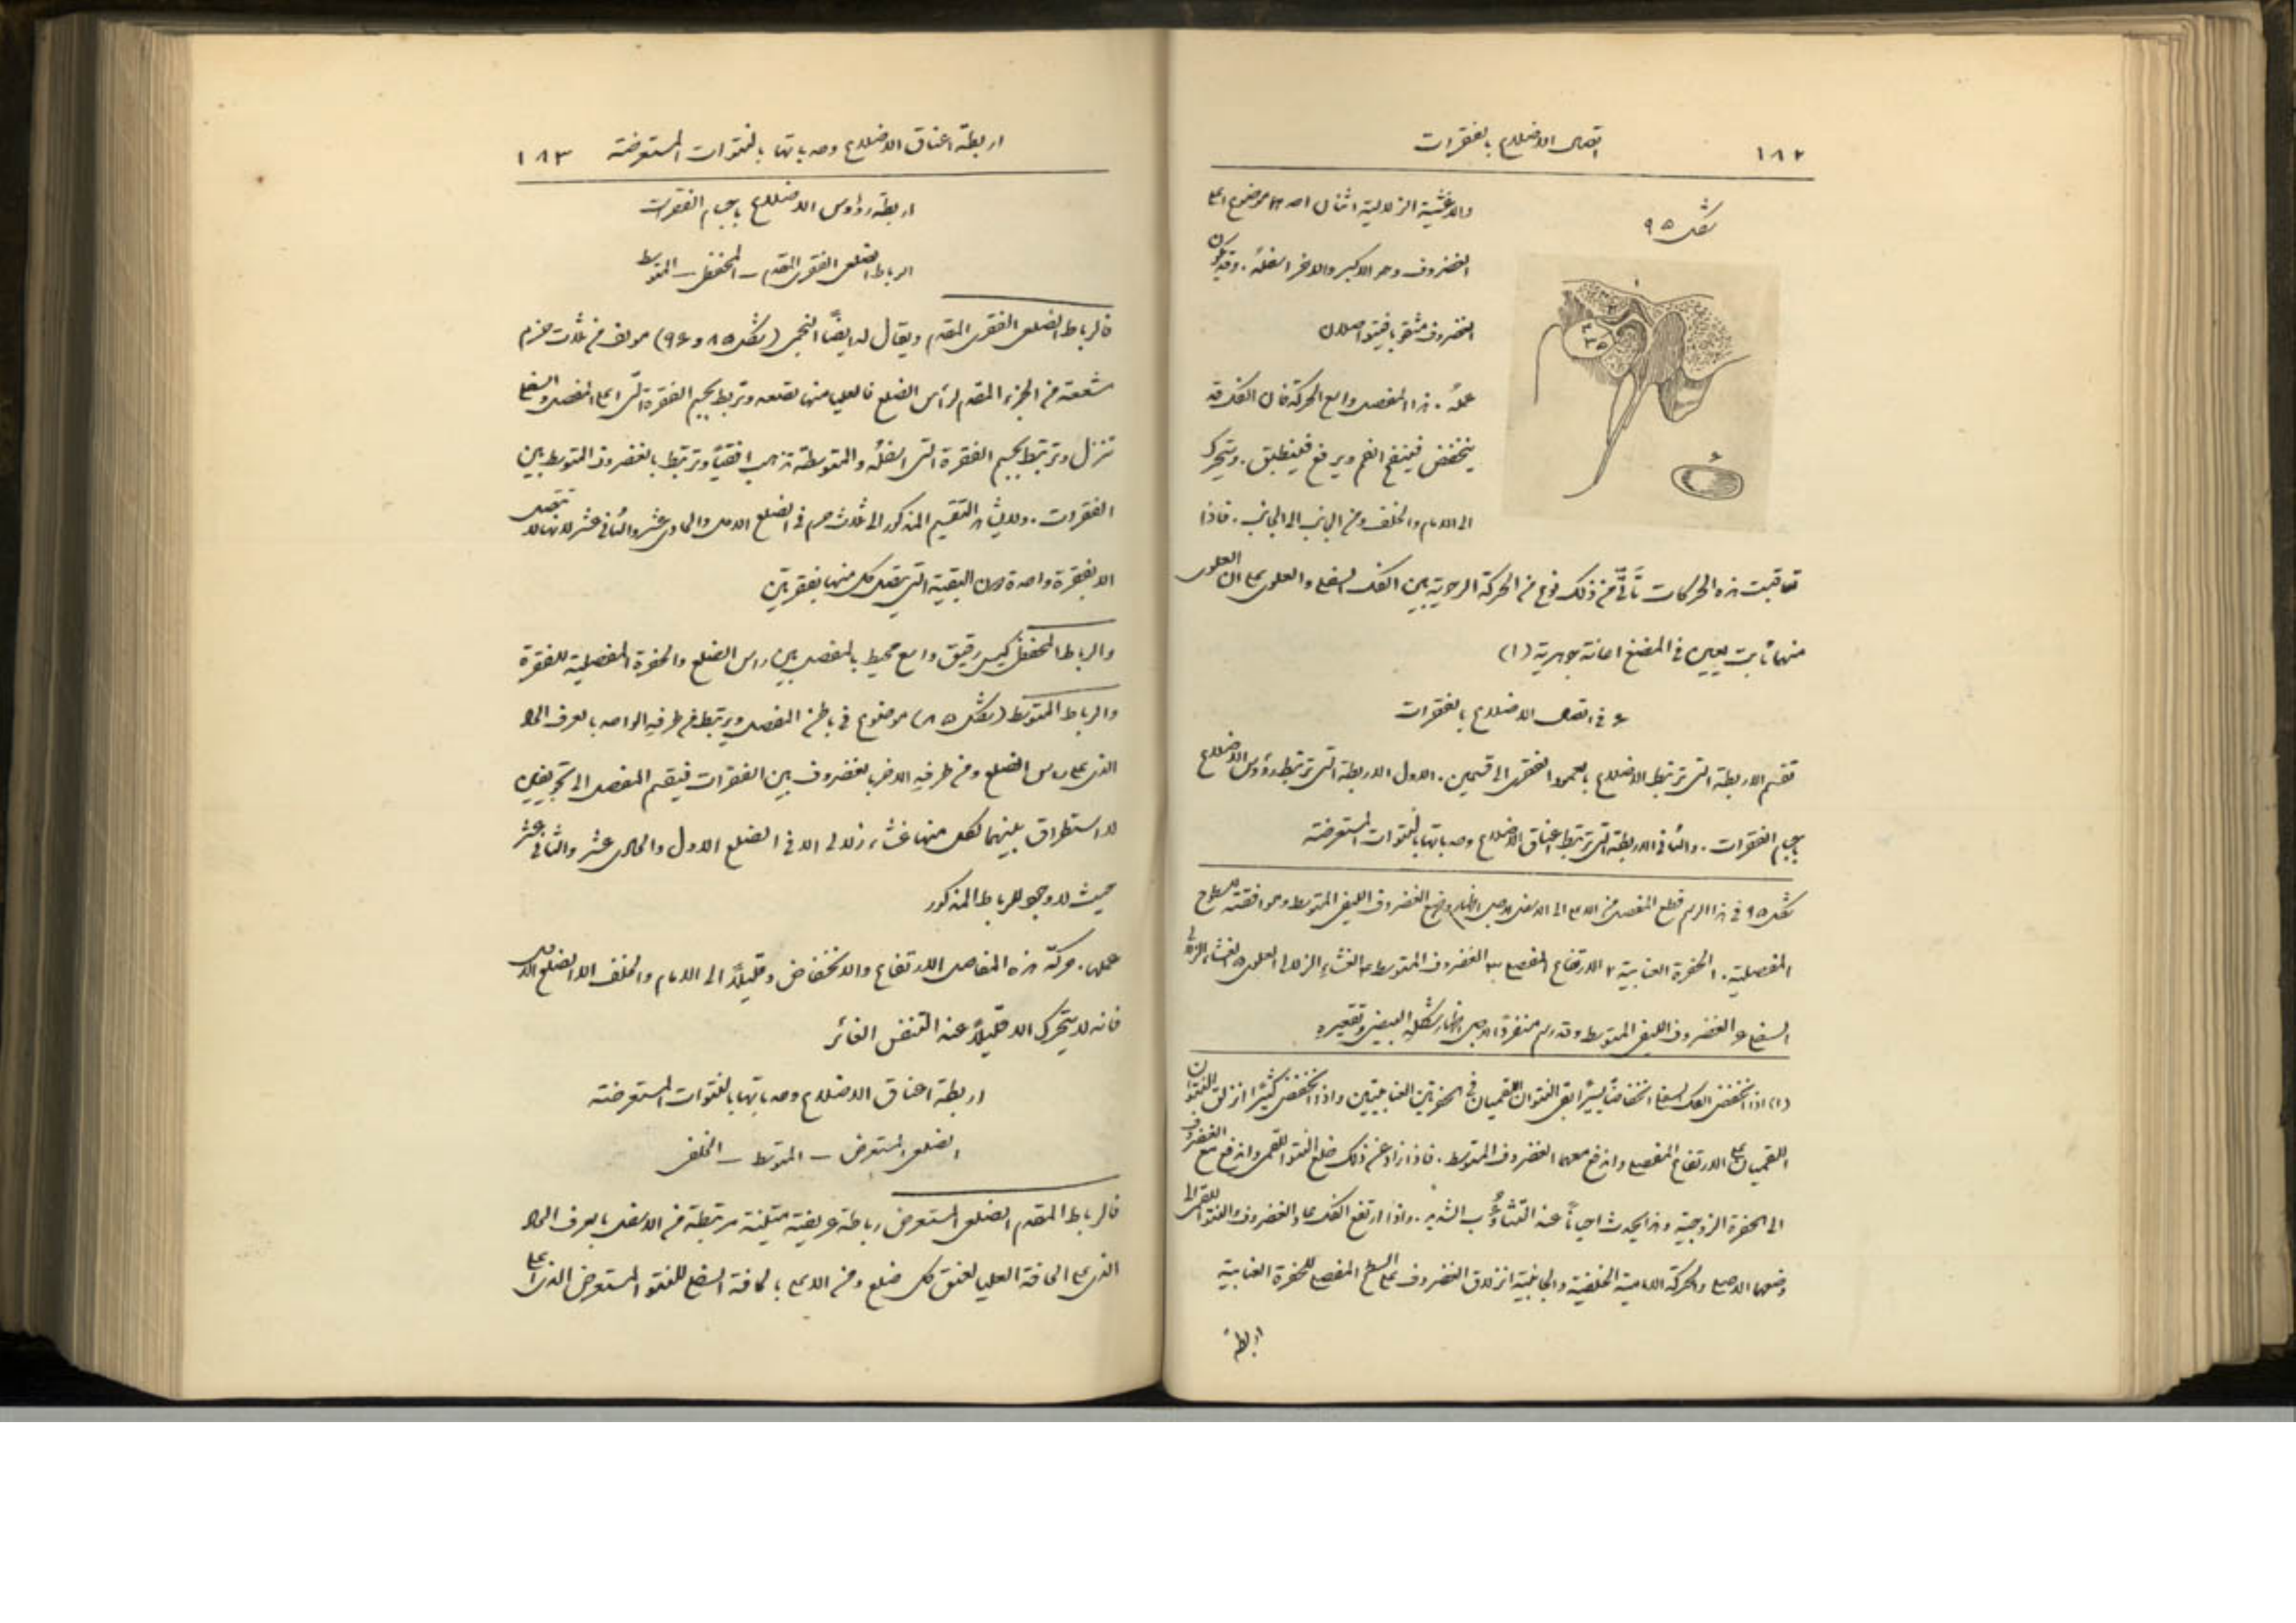 ١٨٢ اتصال الاضلاع بالفقرات
شكل ٩٥
والاغشية الزلالية اثنان احدهما موضوع اعلى
الغضروف وهو الاكبر والاخر اسفله. وقد يكون
الغضروف مثقوبا فيتواصلان
عمله. هذا المفصل واسع الحركة فان الفك قد
ينخفض فينفتح الفم ويرفع فينطبق. ويتحرك
الى الامام والخلف ومن الجانب الى الجانب. فاذا
تعاقبت هذه الحركات تأتّى من ذلك نوع من الحركة الرحوية بين الفك السفلي والعلوي على ان العلوي
منهما ثابت يعين في المضغ اعانة جوهرية (١)
٤ في اتصال الاضلاع بالفقرات
تقسم الاربطة التي تربط الاضلاع بالعمود الفقري الى قسمين. الاول الاربطة التي تربط رؤوس الاضلاع
باجسام الفقرات. والثاني الاربطة التي تربط اعناق الاضلاع وحدباتها بالنتوات المستعرضة
شكل ٩٥ في هذا الرسم قطع المفصل من الاعلى الى الاسفل لاجل اظهار وضع الغضروف الليفي المتوسط وموافقته للسطوح
المفصلية. ١ الحفرة العنابية ٢ الارتفاع المفصلي ٣ الغضروف المتوسط ٤ الغشاء الزلالي العلوي ٥ الغشاء الزلالي
السفلي ٦ الغضروف الليفي المتوسط وقد رسم منفردًا لاجل اظهار شكله البيضي وتقعيره
(١) اذا انخفض الفك السفلي انخفاضًا يسيرًا بقي النتوان اللقميان في الحفرتين العنابيتين واذا انخفض كثيرًا انزلق النتوان
اللقميان على الارتفاع المفصلي واندفع معهما الغضروف المتوسط. فاذا زاد عن ذلك خلع النتوء اللقمي واندفع مع الغضروف
الى الحفرة الزوجية وهذا يحدث احيانًا عند التثاؤب الشديد. واذا ارتفع الفك عاد الغضروف والنتوء اللقمي الى
وضعهما الاصلي والحركة الامامية الخلفية والجانبية انزلاق الغضروف على السطح المفصلي للحفرة العنابية
اربطة
اربطة اعناق الاضلاع وحدباتها بالنتوات المستعرضة ١٨٣
اربطة رؤوس الاضلاع باجسام الفقرات
الرباط الضلعي الفقري المقدم – المحفظي – المتوسط
فالرباط الضلعي الفقري المقدم ويقال له ايضًا النجمي (شكل ٨٥ و ٩٦) مولف من ثلاث حزم
متشعبة من الجزء المقدم لرأس الضلع فالعليا منها تصعد وتربط بجسم الفقرة التي اعلى المفصل والسفلى
تنزل وترتبط بجسم الفقرة التي اسفله والمتوسطة تذهب افقيًا وترتبط بالغضروف المتوسط بين
الفقرات. ولا يشاهد التقسيم المذكور الى ثلاث حزم في الضلع الاول والحادي عشر والثاني عشر لانها لا تتصل
الا بفقرة واحدة دون البقية التي يتصل كل منها بفقرتين
والرباط المحفظي كيس رقيق واسع محيط بالمفصل بين راس الضلع والحفرة المفصلية للفقرة
والرباط المتوسط (شكل ٨٥) موضوع في باطن المفصل ويرتبط من طرفه الواحد بالحرف الحاد
الذي على راس الضلع ومن طرفه الاخر بالغضروف بين الفقرات فيقسم المفصل الى تجويفين
لا استطراق بينهما لكل منهما غشاء زلالي الا في الضلع الاول والحادي عشر والثاني عشر
حيث لا وجود للرباط المذكور
عملها. حركة هذه المفاصل الارتفاع والانخفاض وقليلًا الى الامام والخلف الا الضلع الاول
فانه لا يتحرك الا قليلًا عند التنفس الغائر
اربطة اعناق الاضلاع وحدباتها بالنتوات المستعرضة
الضلعي المستعرض – المتوسط – الخلفي
فالرباط المقدم الضلعي المستعرض رباطة عريضة متينة مرتبطة من الاسفل بالحرف الحاد
الذي على الحافة العليا لعنق كل ضلع ومن الاعلى بالحافة السفلى للنتوء المستعرض الذي اعلى